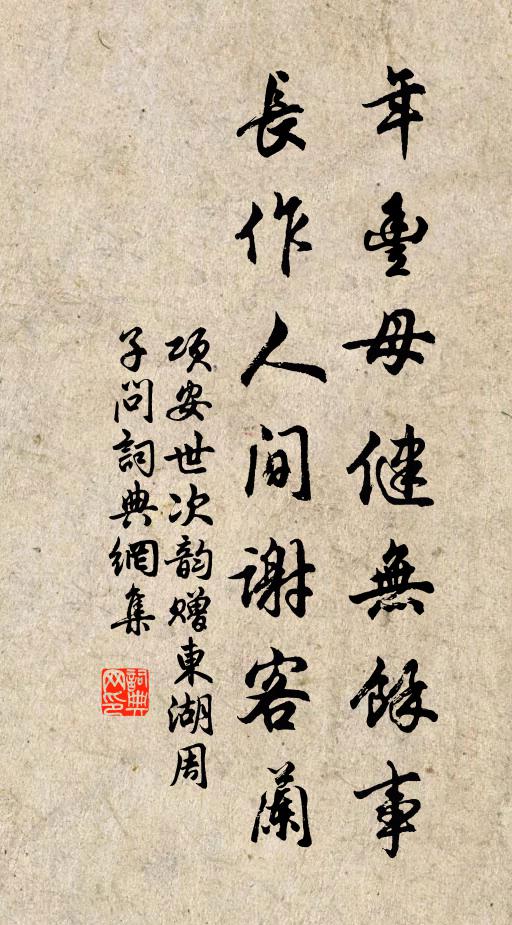 年豐母健無餘事
長作人間謝客蘭
项安世次韵赠東湖周
子問詞典網集
詞典
网印